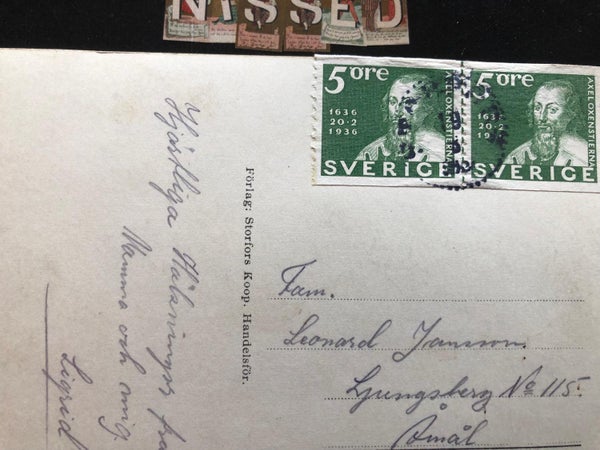 NISSED
5 öre
1636
20·2
1936
SVERIGE
AXEL OXENSTIERNA
5 öre
1636
20·2
1936
SVERIGE
AXEL OXENSTIERNA
Hjärtliga Hälsningar fra
Mamma och mig.
Sigrid
Förlag: Storfors Koop. Handelsför.
Fam.
Leonard Jansson.
Ljungsberg No 115.
Åmål